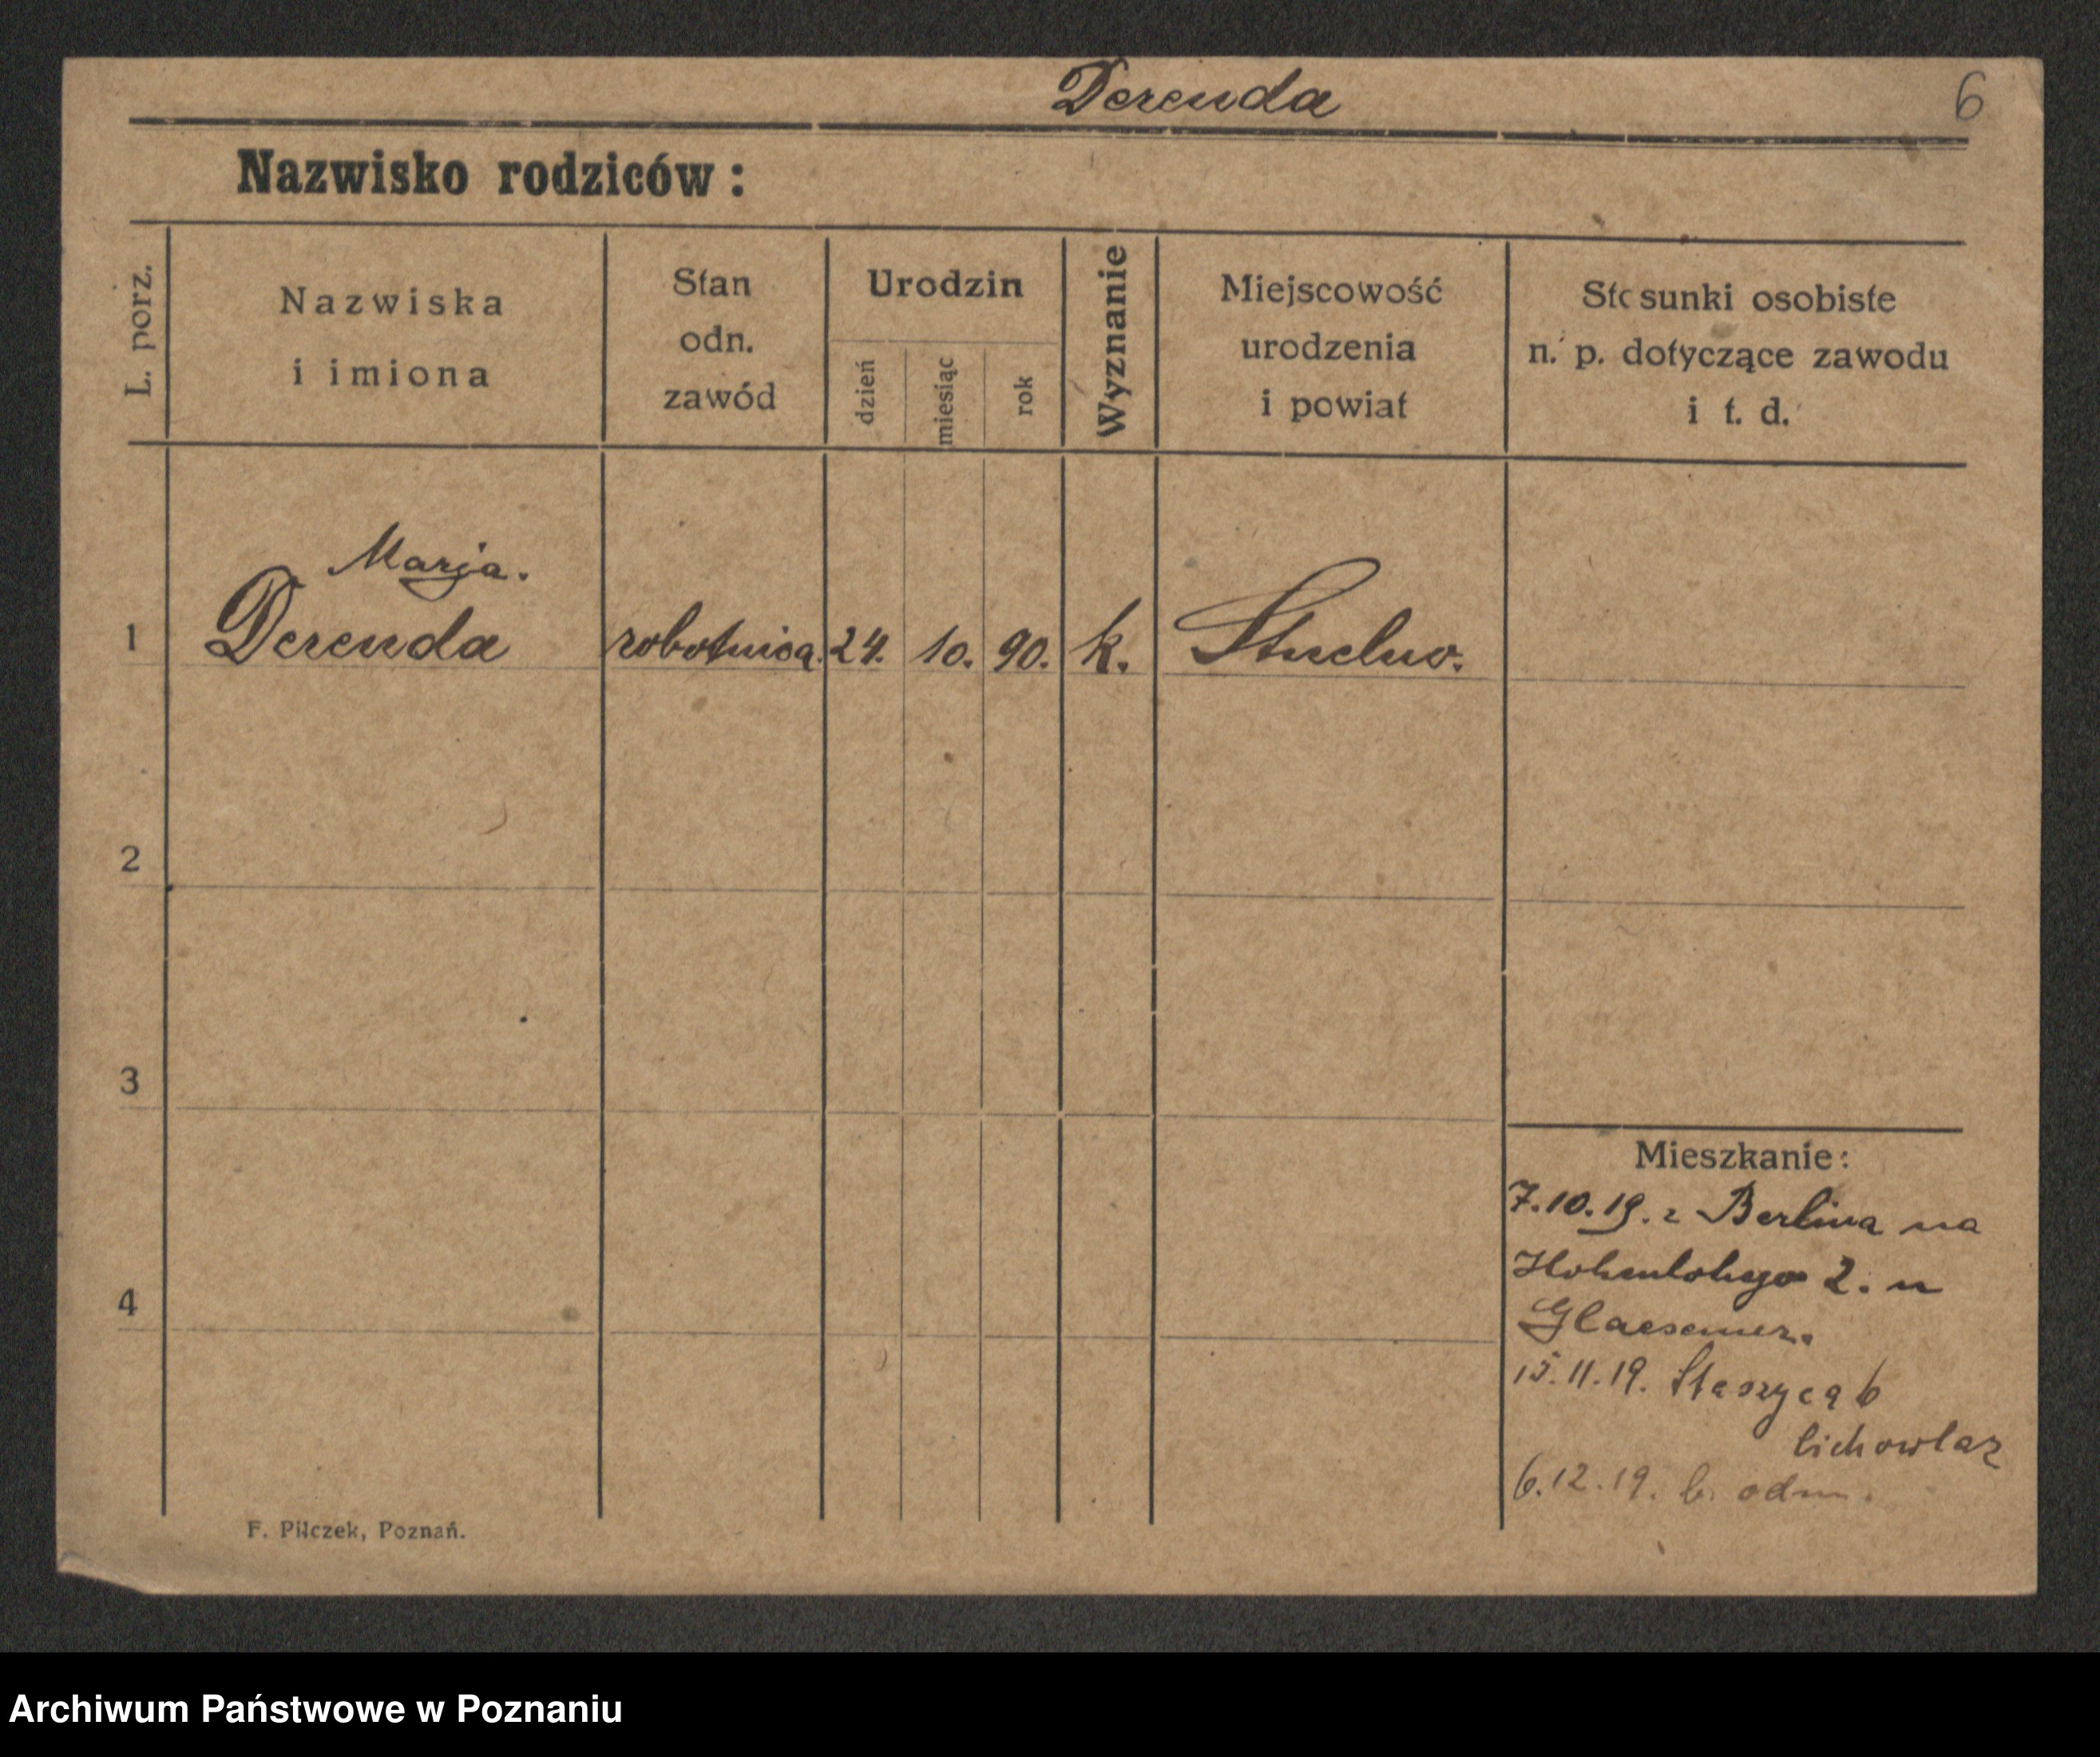 Derenda
6
Nazwisko rodziców:
L. porz.
Nazwiska
i imiona
Stan
odn.
zawód
Urodzin
dzień
miesiąc
rok
Wyznanie
Miejscowość
urodzenia
i powiat
Stosunki osobiste
n. p. dotyczące zawodu
i t. d.
Marja.
1 Derenda robotnica. 24. 10. 90. k.
2
3
4
Mieszkanie:
7.10.19. z Berlina na
Hohenlohego 2. u
Glaesemer.
15.11.19. Staszyca 6
6.12.19. b. odm.
F. Pilczek, Poznań.
Archiwum Państwowe w Poznaniu